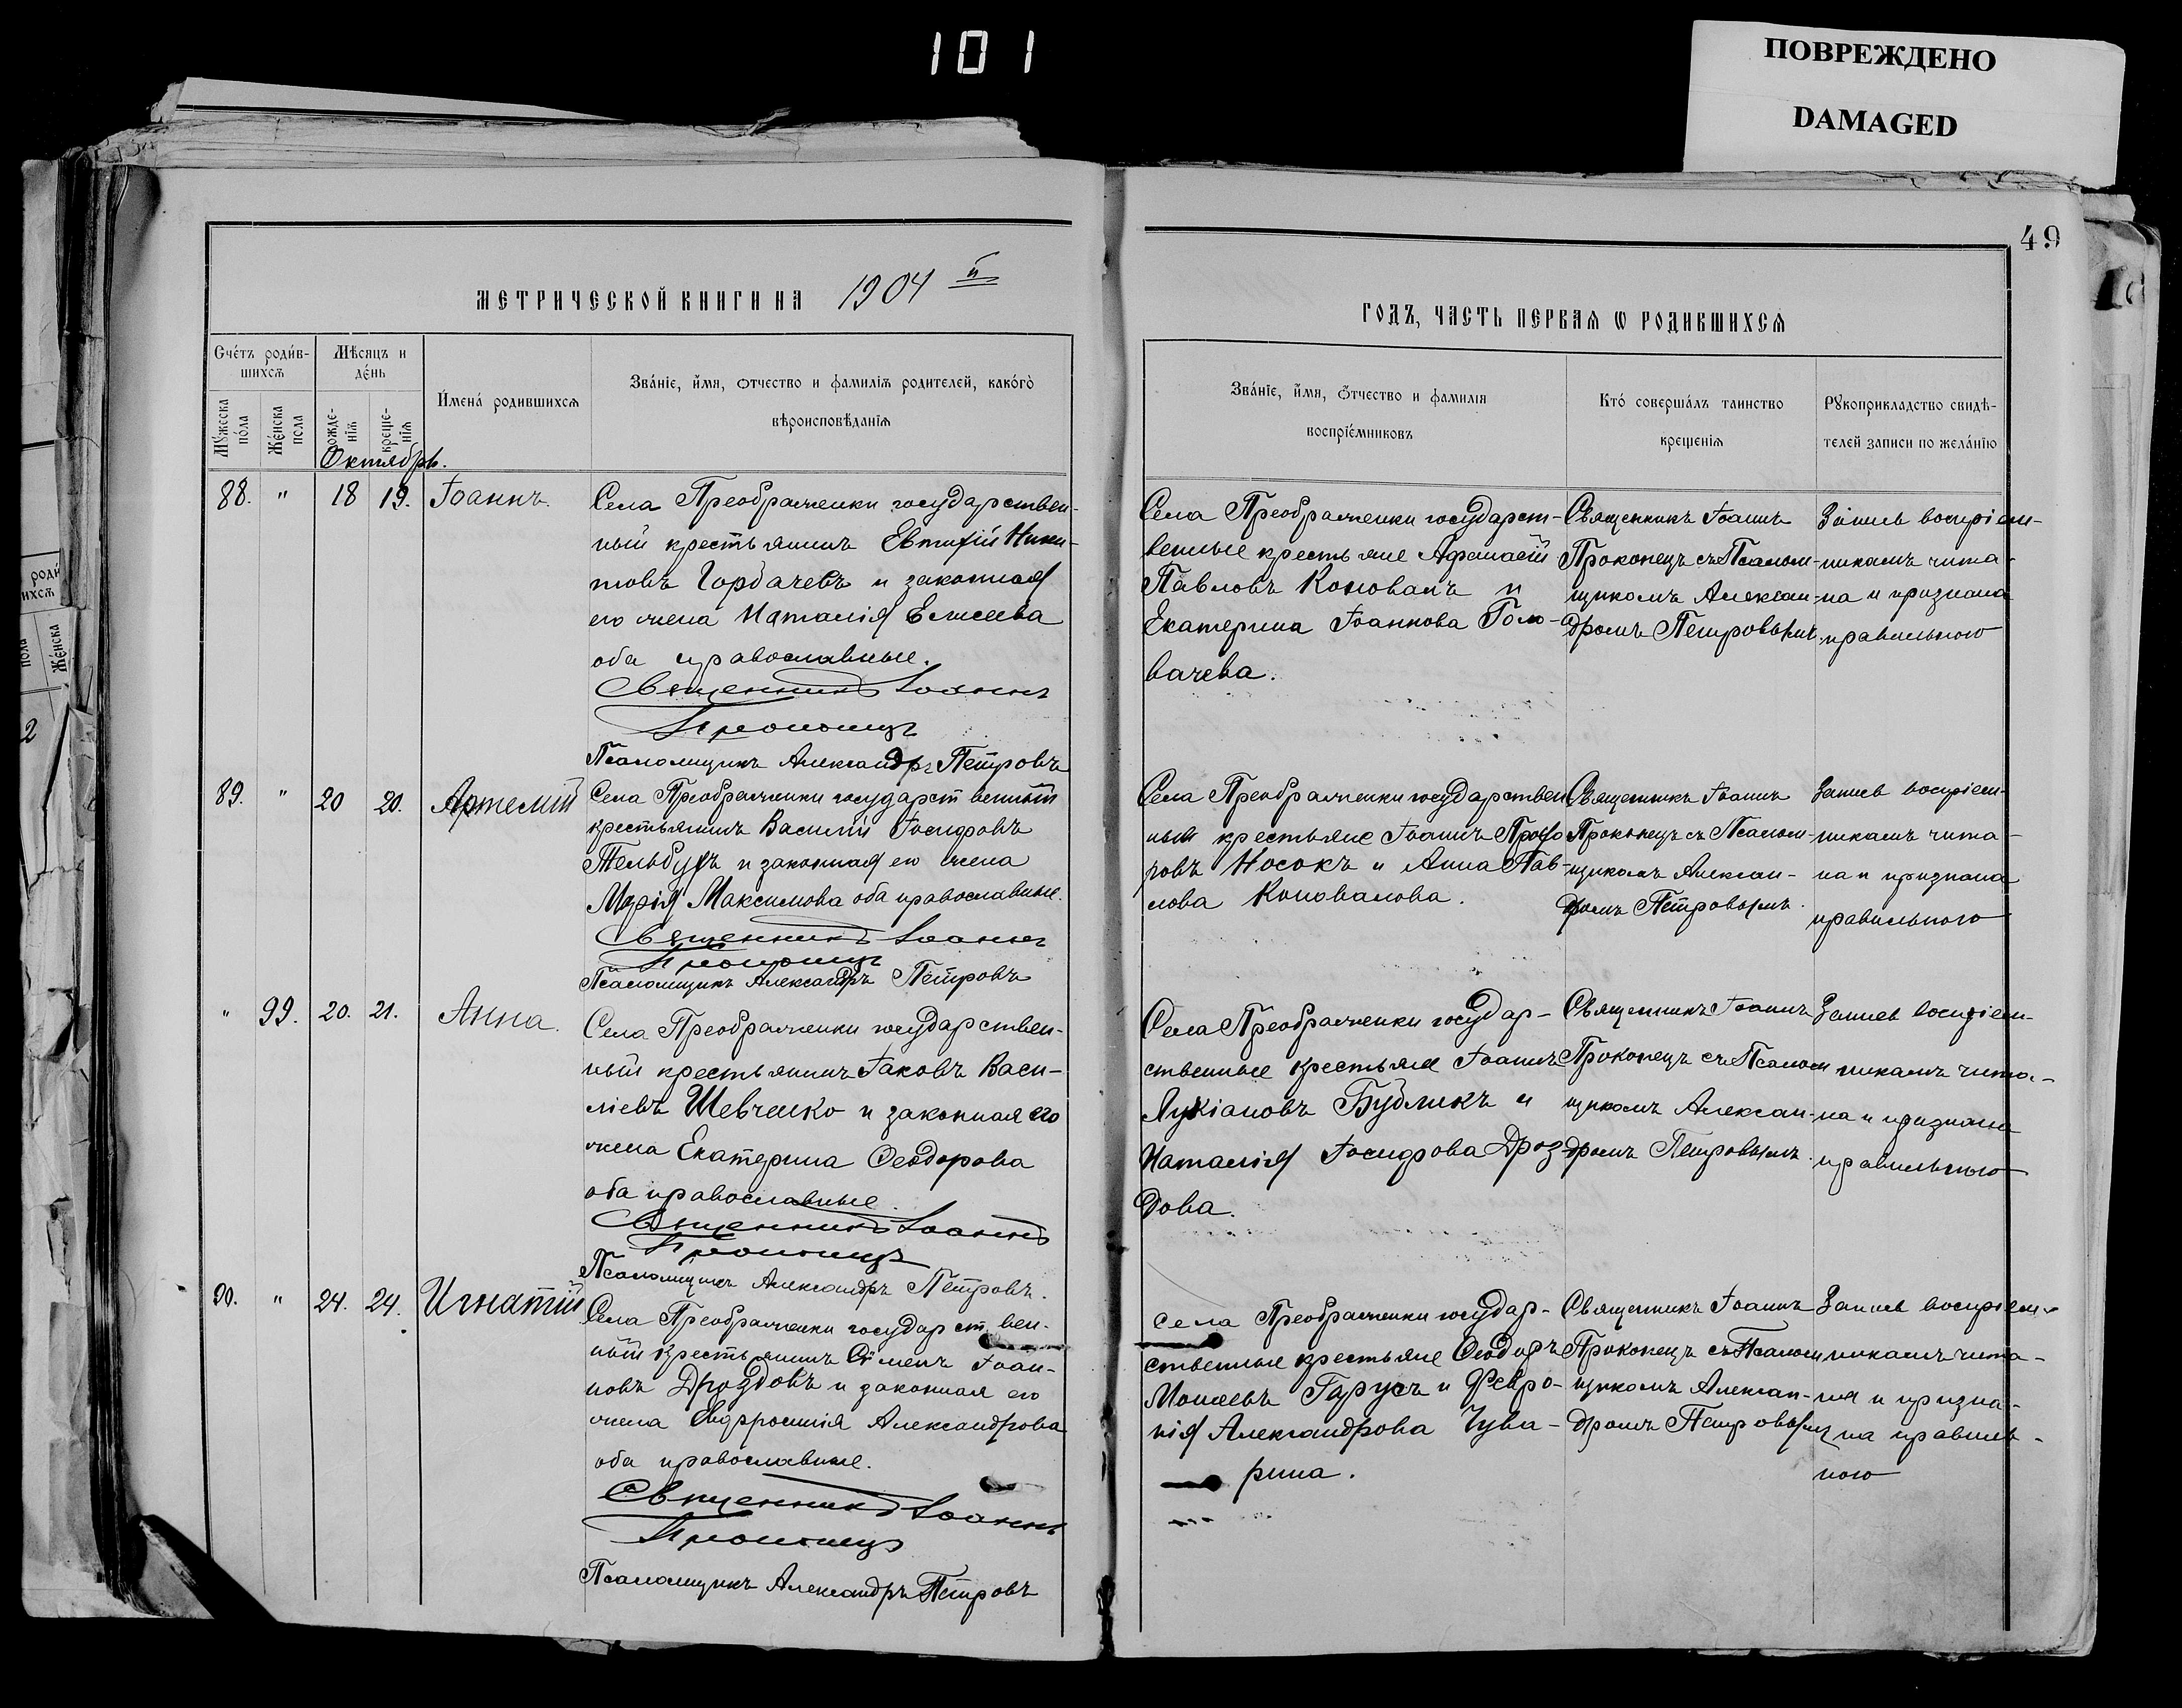 101
ПОВРЕЖДЕНО
DAMAGED
49
МЕТРИЧЕСКОЙ КНИГИ НА 1904 й
ГОДЪ, ЧАСТЬ ПЕРВАѦ Ѡ РОДИВШИХСѦ
Счётъ родив-
шихсѧ
Мѣсяцъ и
день
Имена родившихсѧ
Званіе, имя, отчество и фамиліѧ родителей, какого
вѣроисповѣданіѧ
Мужеска
пола
Женска
пола
рожде-
ніѧ
креще-
ніѧ
Октябрь.
Званіе, имя, отчество и фамилія
воспріемниковъ
Кто совершалъ таинство
крещеніѧ
Рукоприкладство свидѣ-
телей записи по желанію
88. " 18 19. Іоаннъ.
Села Преображенки государствен-
ный крестьянинъ Евтифій Ники-
товъ Горбачевъ и законная
его жена Наталія Елисеева
оба православные.
Священникъ Іоаннъ
Прокопецъ
Псаломщикъ Александръ Петровъ
Села Преображенки государст-
венные крестьяне Афанасій
Павловъ Коновалъ и
Екатерина Іоаннова Голо-
вачева.
Священникъ Іоаннъ
Прокопецъ съ Псалом-
щикомъ Алексан-
дромъ Петровымъ.
Запись воспріем-
никамъ чита-
на и признана
правильною
89. " 20 20. Артемій
Села Преображенки государственный
крестьянинъ Василій Іосифовъ
Тельбухъ и законная его жена
Марія Максимова оба православные.
Священникъ Іоаннъ
Прокопецъ
Псаломщикъ Александръ Петровъ
Села Преображенки государствен
ный крестьяне Іоаннъ Прохо
ровъ Носокъ и Анна Пав-
лова Коновалова.
Священникъ Іоаннъ
Прокопецъ съ Псалом-
щикомъ Алексан-
дромъ Петровымъ.
Запись воспріем-
никамъ чита-
на и признана
правильною
" 99. 20. 21. Анна.
Села Преображенки государствен-
ный крестьянинъ Іаковъ Васи-
ліевъ Шевченко и законная его
жена Екатерина Ѳеодорова
оба православные.
Священникъ Іоаннъ
Прокопецъ
Псаломщикъ Александръ Петровъ.
Села Преображенки государ-
ственные крестьяне Іоаннъ
Лукіановъ Будликъ и
Наталія Іосифова Дроз-
дова.
Священникъ Іоаннъ
Прокопецъ съ Псалом
щикомъ Алексан-
дромъ Петровымъ.
Запись воспріем-
никамъ чита-
на и признана
правильною
90. " 24. 24. Игнатій
Села Преображенки государствен-
ный крестьянинъ Сѵменъ Іоан-
новъ Дроздовъ и законная его
жена Евфросинія Александрова
оба православные.
Священникъ Іоаннъ
Прокопецъ
Псаломщикъ Александръ Петровъ
Села Преображенки государ-
ственные крестьяне Ѳеодоръ
Моисеевъ Гарусъ и Февро-
нія Александрова Чува-
рина.
Священникъ Іоаннъ
Прокопецъ съ Псалом
щикомъ Алексан-
дромъ Петровымъ
Запись воспріем-
никамъ чита-
на и призна-
на правиль-
ною